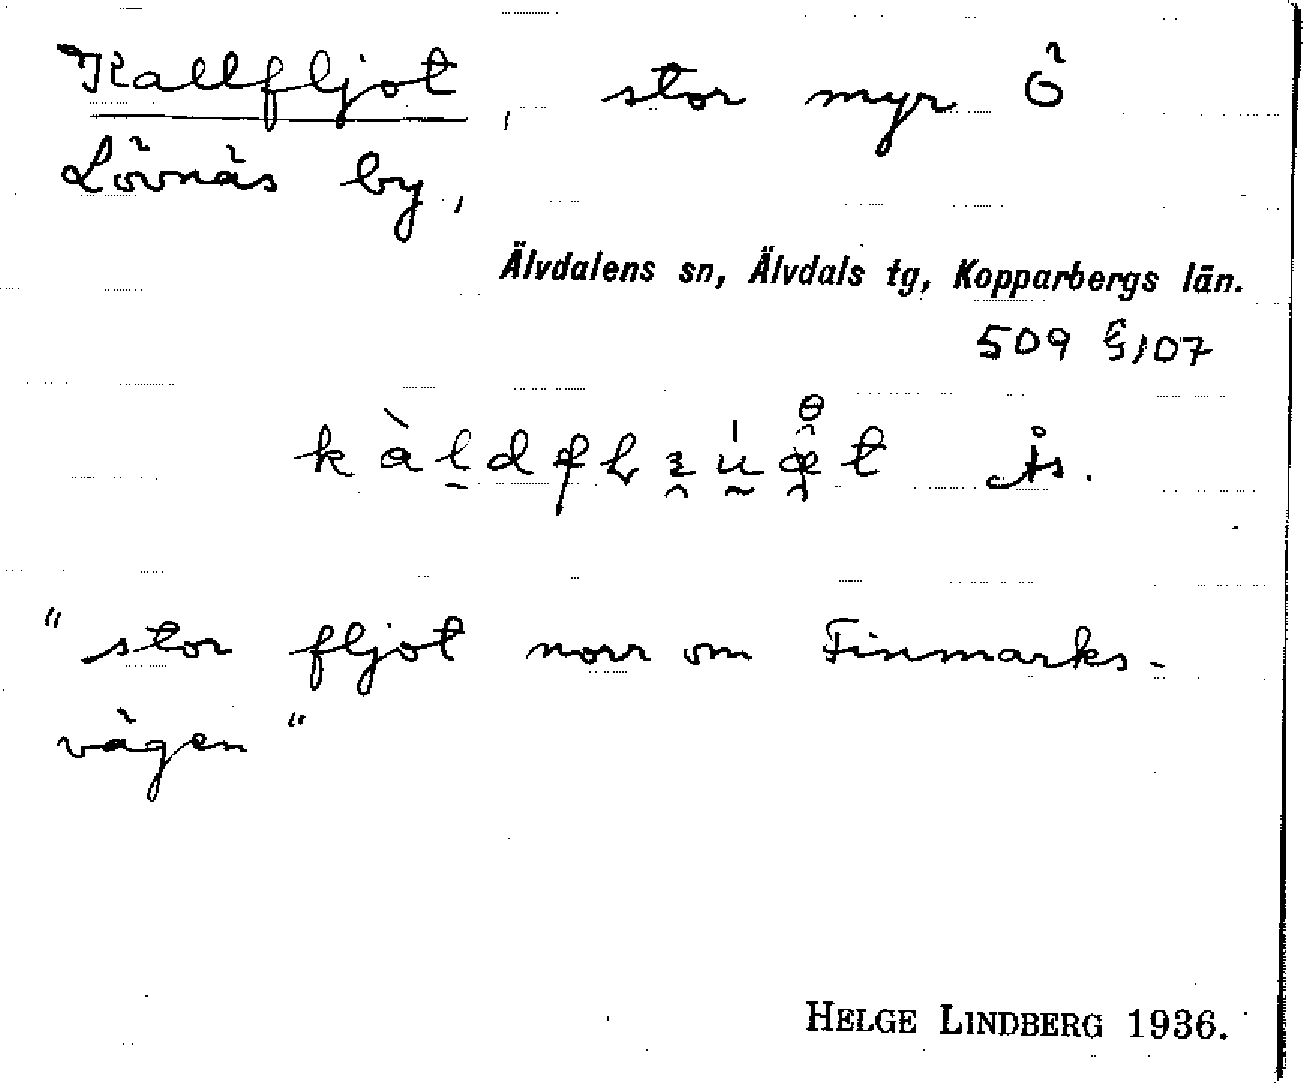 Kallfljot, stor myr Ö
Lövnäs by,
Älvdalens sn, Älvdals tg, Kopparbergs län.
509 §107
Ås.
"stor fljot norr om Finmarks-
vägen"
HELGE LINDBERG 1936.